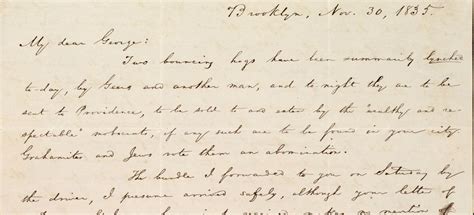 Brooklyn, Nov. 30, 1835.
My dear George:
Two bouncing hogs have been summarily lynched
to-day, by Geers and another man, and to night they are to be
sent to Providence, to be sold and eaten by the "wealthy and re-
spectable" mobocrats, if any such are to be found in your city.
Grahamites and Jews vote them an abomination.
The bundle I forwarded to you on Saturday by
the driver, I presume arrived safely, although your letter of